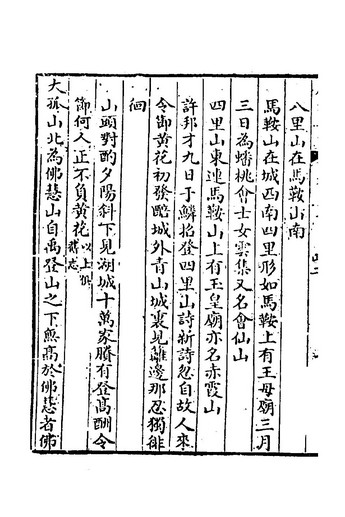 八里山在馬鞍山南
馬鞍山在城西南四里形如馬鞍上有王母廟三月
三日為蟠桃會士女雲集又名會仙山
四里山東連馬鞍山上有玉皇廟亦名赤霞山
許邦才九日于鱗招登四里山詩新詩忽自故人來
令節黃花初發醅城外青山城裏見籬邊那忍獨徘
徊
山頭對酌夕陽斜下見湖城十萬家賸有登高酬令
節何人正不負黃花以上俱舊志
大孤山北為佛慧山自禹登山之下無高於佛慧者佛